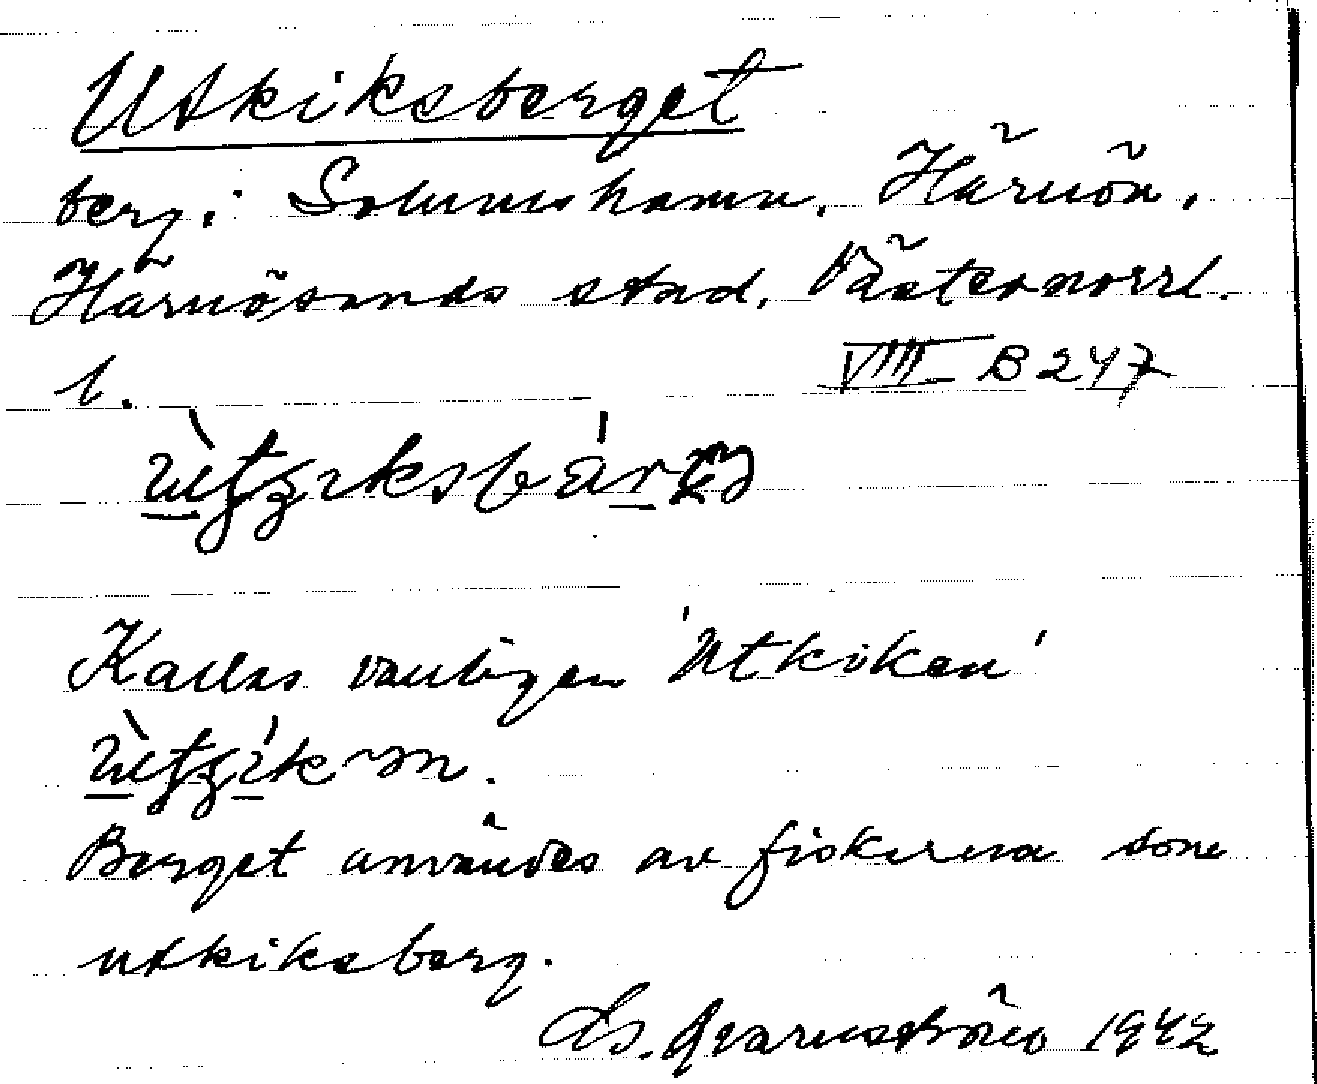 Utkiksberget
berg i Solumshamn, Härnön,
Härnösands stad, Västernorrl.
l. VIII B 247
Kallas vanligen 'Utkiken'
Berget användes av fiskarena som
utkiksberg.
Ds. Qvarnström 1942